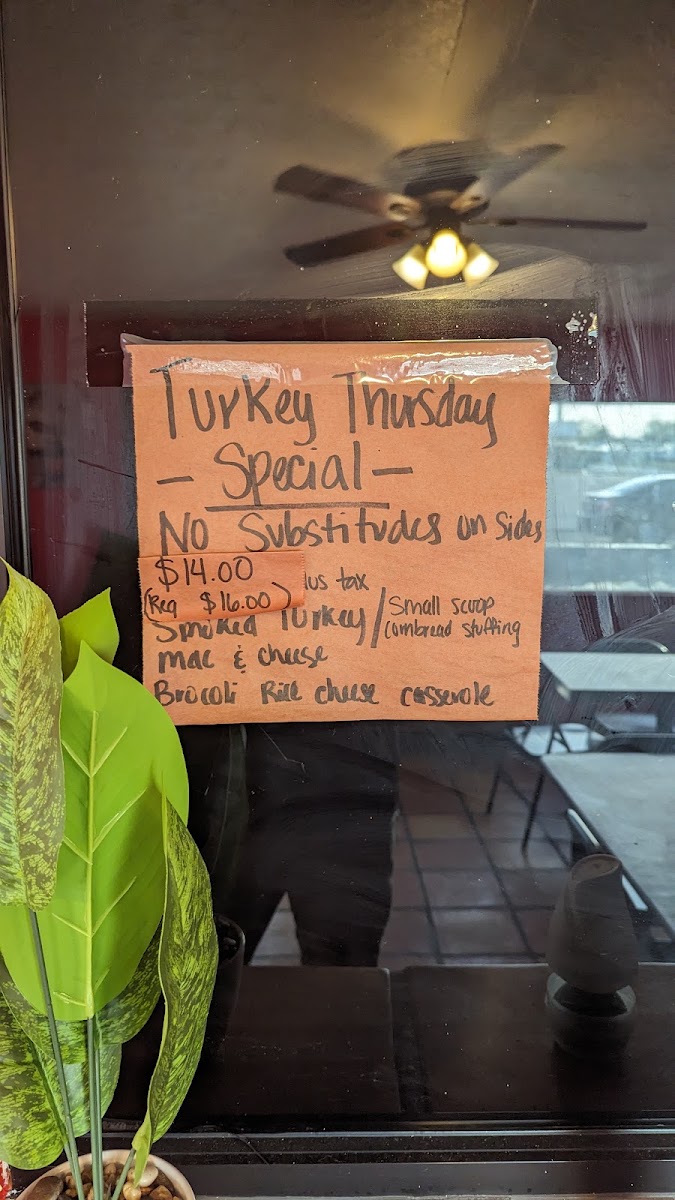 Turkey Thursday
- Special -
No Substitudes on Sides
$14.00
(Reg $16.00) lus tax
Smoked Turkey / Small scoop
cornbread stuffing
mac & cheese
Brocoli Rice cheese casserole